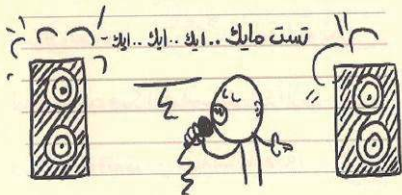 تست مايك..ايك..ايك..ايك-